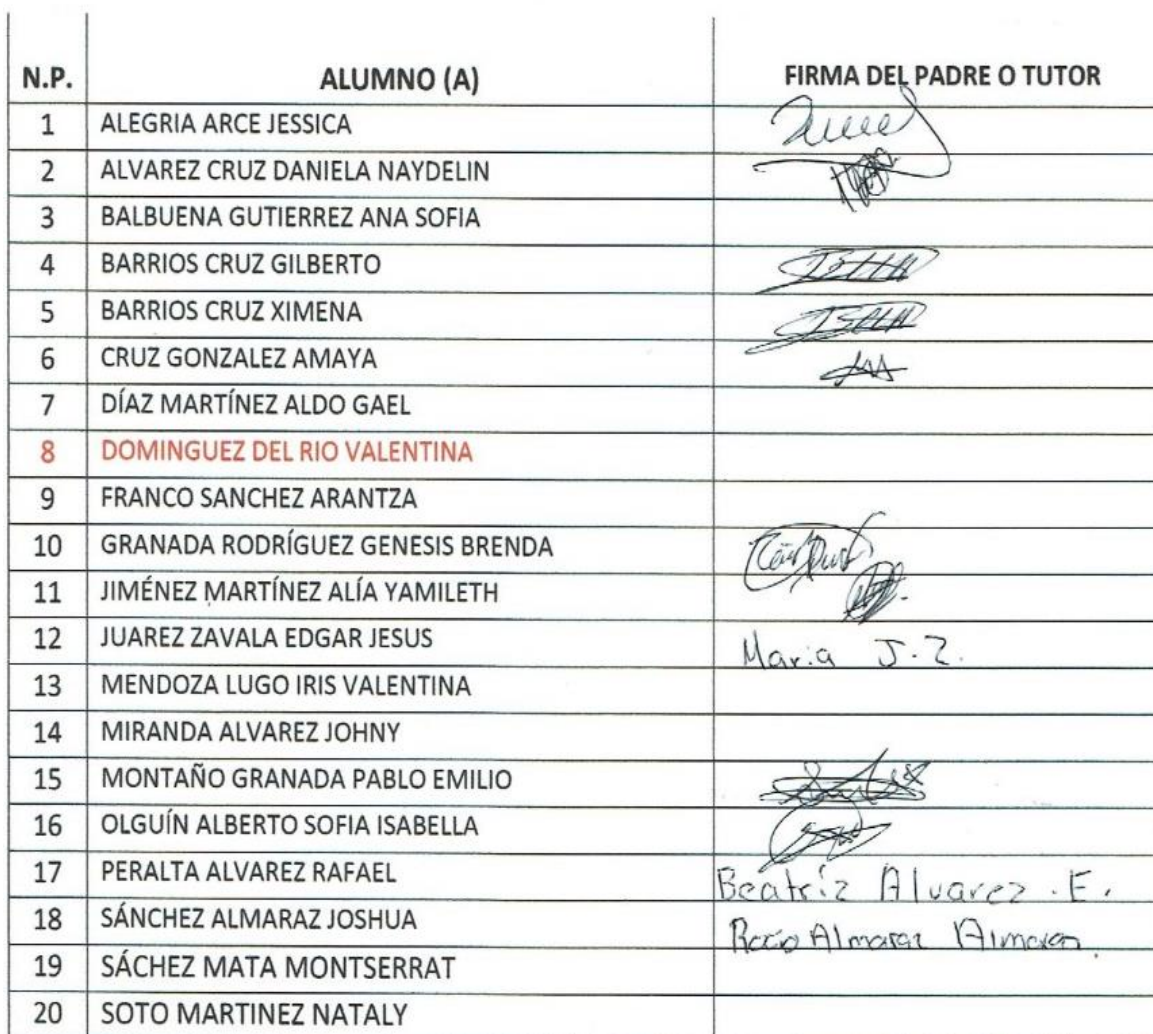 N.P. ALUMNO (A) FIRMA DEL PADRE O TUTOR
1 ALEGRIA ARCE JESSICA
2 ALVAREZ CRUZ DANIELA NAYDELIN
3 BALBUENA GUTIERREZ ANA SOFIA
4 BARRIOS CRUZ GILBERTO
5 BARRIOS CRUZ XIMENA
6 CRUZ GONZALEZ AMAYA
7 DÍAZ MARTÍNEZ ALDO GAEL
8 DOMINGUEZ DEL RIO VALENTINA
9 FRANCO SANCHEZ ARANTZA
10 GRANADA RODRÍGUEZ GENESIS BRENDA
11 JIMÉNEZ MARTÍNEZ ALÍA YAMILETH
12 JUAREZ ZAVALA EDGAR JESUS Maria J.Z.
13 MENDOZA LUGO IRIS VALENTINA
14 MIRANDA ALVAREZ JOHNY
15 MONTAÑO GRANADA PABLO EMILIO
16 OLGUÍN ALBERTO SOFIA ISABELLA
17 PERALTA ALVAREZ RAFAEL Beatriz Alvarez . E.
18 SÁNCHEZ ALMARAZ JOSHUA Rocio Almaraz
19 SÁCHEZ MATA MONTSERRAT
20 SOTO MARTINEZ NATALY